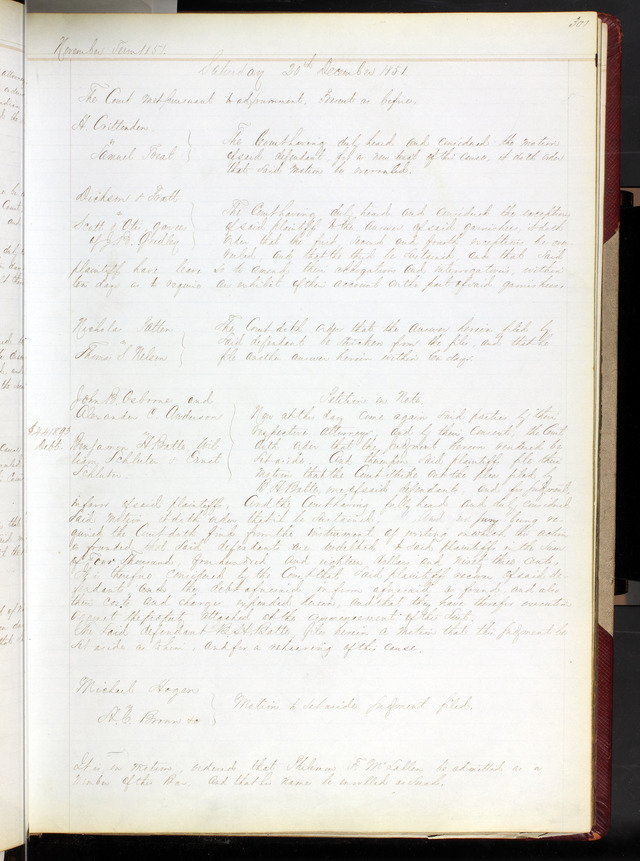 301
November Term 1851.
Saturday 20th December 1851.
The Court met pursuant to adjournment. Present as before.
H. Crittenden
vs
Samuel Treat
The Court having duly heard and considered the motion
of said defendant for a new trial of this cause, it doth order
that said motion be overruled.
Dickson &
vs
Scott & Otis garnee
of J. B. Gridley
The Court having duly heard and considered the exceptions
of said plaintiff to the answer of said garnishees, & doth
order that the first, second and fourth exceptions be over
ruled, and that the third be sustained, and that said
plaintiff have leave so to amend their allegations and interrogatories, within
ten days as to require an exhibit of their account on the part of said garnishees.
Nicholas
vs
Thomas S. Nelson
The Court doth order that the answer herein filed by
said defendant be stricken from the file, and that he
file another answer herein within ten days.
John B. Osborne and
Alexander C. Anderson
vs
Benjamin H. Batte, Wil
liam Schluter & Ernst
Schluter.
Debt.
Petition on Note.
Now at this day come again said parties by their
respective attorneys, and by their consent, the Court
doth order that the judgment herein rendered be
set aside. And thereupon said plaintiffs file their
motion that the Court strike out the plea filed by
B. H. Batte one of said defendants, and for judgment
in favor of said plaintiffs. And the Court having fully heard and duly considered
said motion it doth order that it be sustained. And no jury being re
quired the Court doth find from the instrument of writing on which the action
is founded, that said defendants are indebted to said plaintiffs in the sum
of Four thousand, four hundred and eighteen dollars and ninety three cents.
It is therefore considered by the Court that said plaintiffs recover of said de-
fendants the debt aforesaid in form aforesaid found, and also
their costs and charges expended herein, and that they have therefor execution
against the property attached at the commencement of the suit.
The said defendant B. H. Batte, files herein a motion that the judgment be
set aside as to him, and for a rehearing of this cause.
Michael Hogan
vs
H. C. Brown &c
Motion to set aside judgment filed.
It is on motion, ordered that Philemon F. McLallen be admitted as a
member of this Bar. And that his name be enrolled as such.